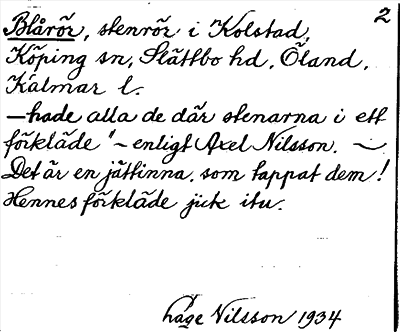 2
Blårör, stenrör i Kolstad,
Köping sn, Slättbo hd, Öland,
Kalmar l.
—hade alla de där stenarna i ett
förkläde" ~ enligt Axel Nilsson. ~
Det är en jättinna, som tappat dem!
Hennes förkläde jick itu.
Nilsson 1934